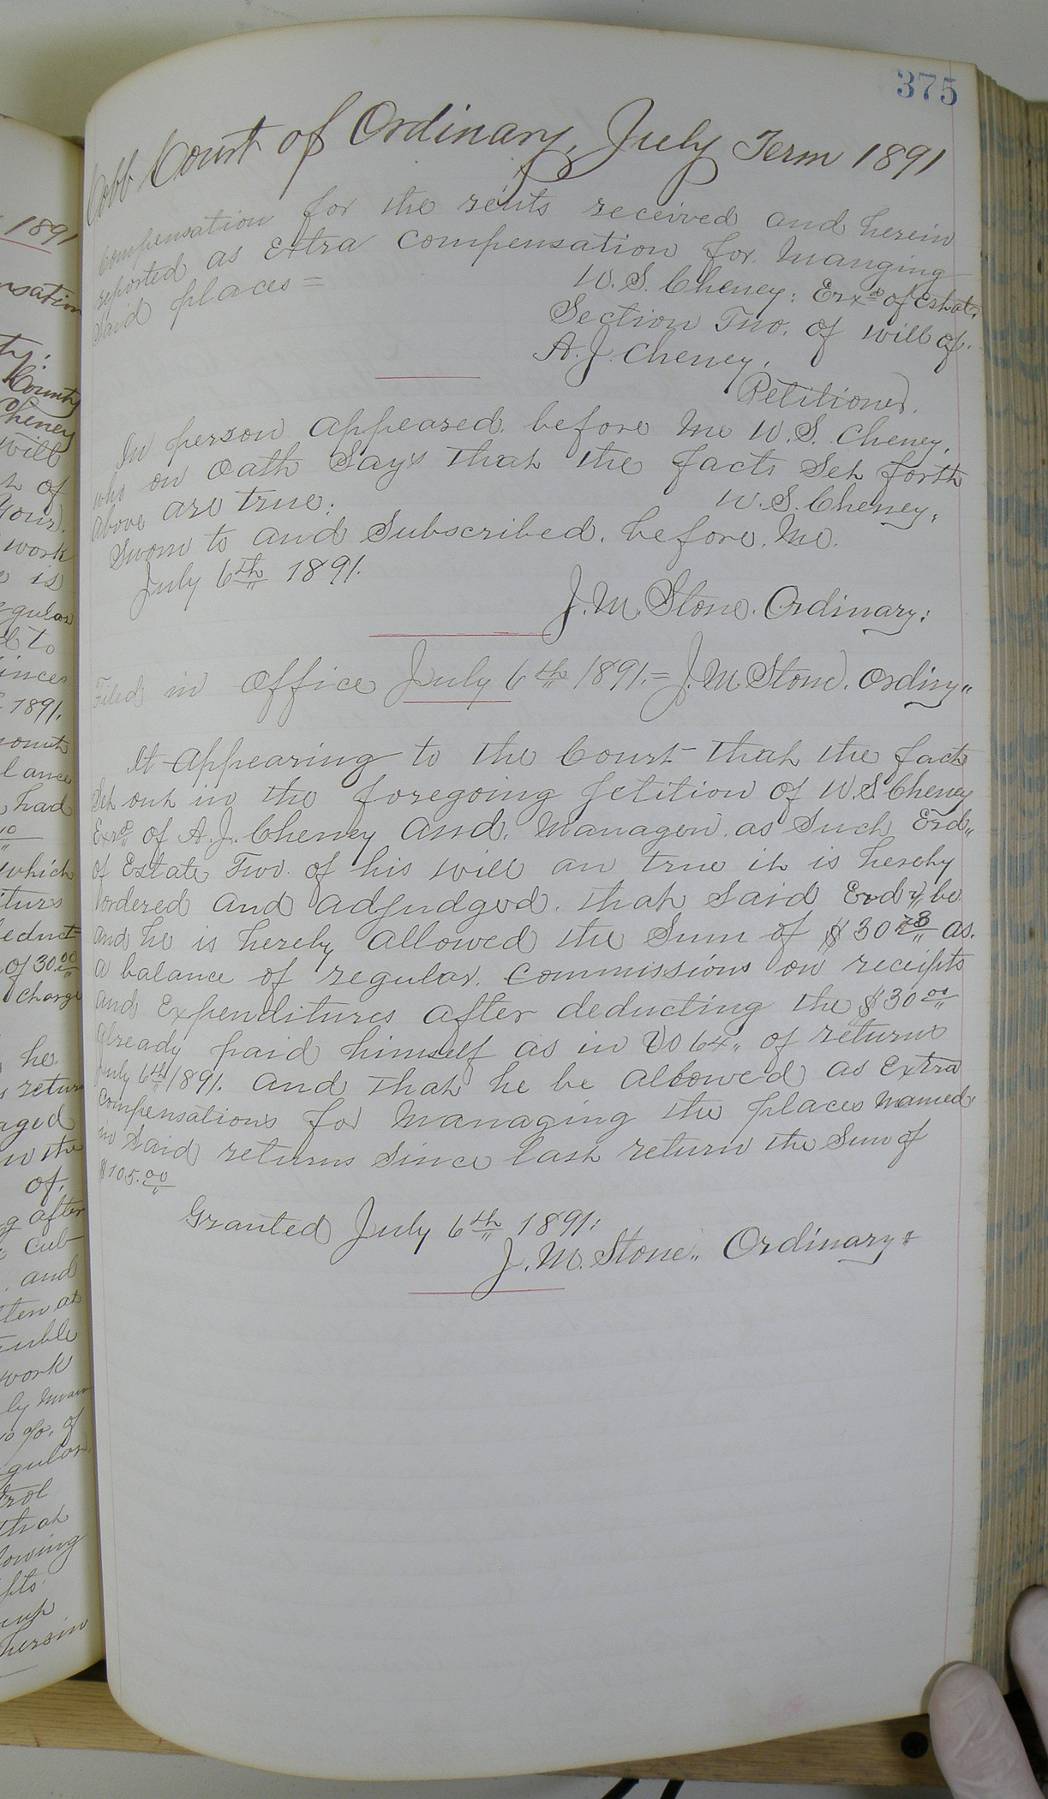 375
Cobb Court of Ordinary, July Term 1891
compensation for the rents received and herein
reported as Extra compensation for Manging
Said places =
W. S. Cheney, Exr of Estate,
Section Two. of will of.
A. J. Cheney,
Petitioner.
In person appeared before me W. S. Cheney,
who on oath Says that the facts Set forth
above are true.
W. S. Cheney,
Sworn to and Subscribed. before. Me.
July 6th 1891.
J. M. Stone. Ordinary:
Filed in office July 6th 1891. = J. M. Stone. Ordiny"
It appearing to the Court that the facts
Set out in the foregoing petition of W. S. Cheney
Exr of A. J. Cheney and. Manager. as Such
of Estate Two. of his will are true it is hereby
ordered and adjudged. that Said be
and he is hereby allowed the Sum of $30 78 as.
a balance of regular. commissions on receipts
and Expenditures after deducting the $30 00
already paid himself as in Vo 64" of returns
July 6th 1891. and that he be allowed as Extra
compensations for managing the places Named
in Said returns Since last return the Sum of
$105.00
Granted July 6th 1891:
J. M. Stone" Ordinary:
1891
County
Cheney
will
of
work
is
to
1891.
had
which
of 30.00
charge
he
return
the
of.
after
and
at
work
of
that
herein